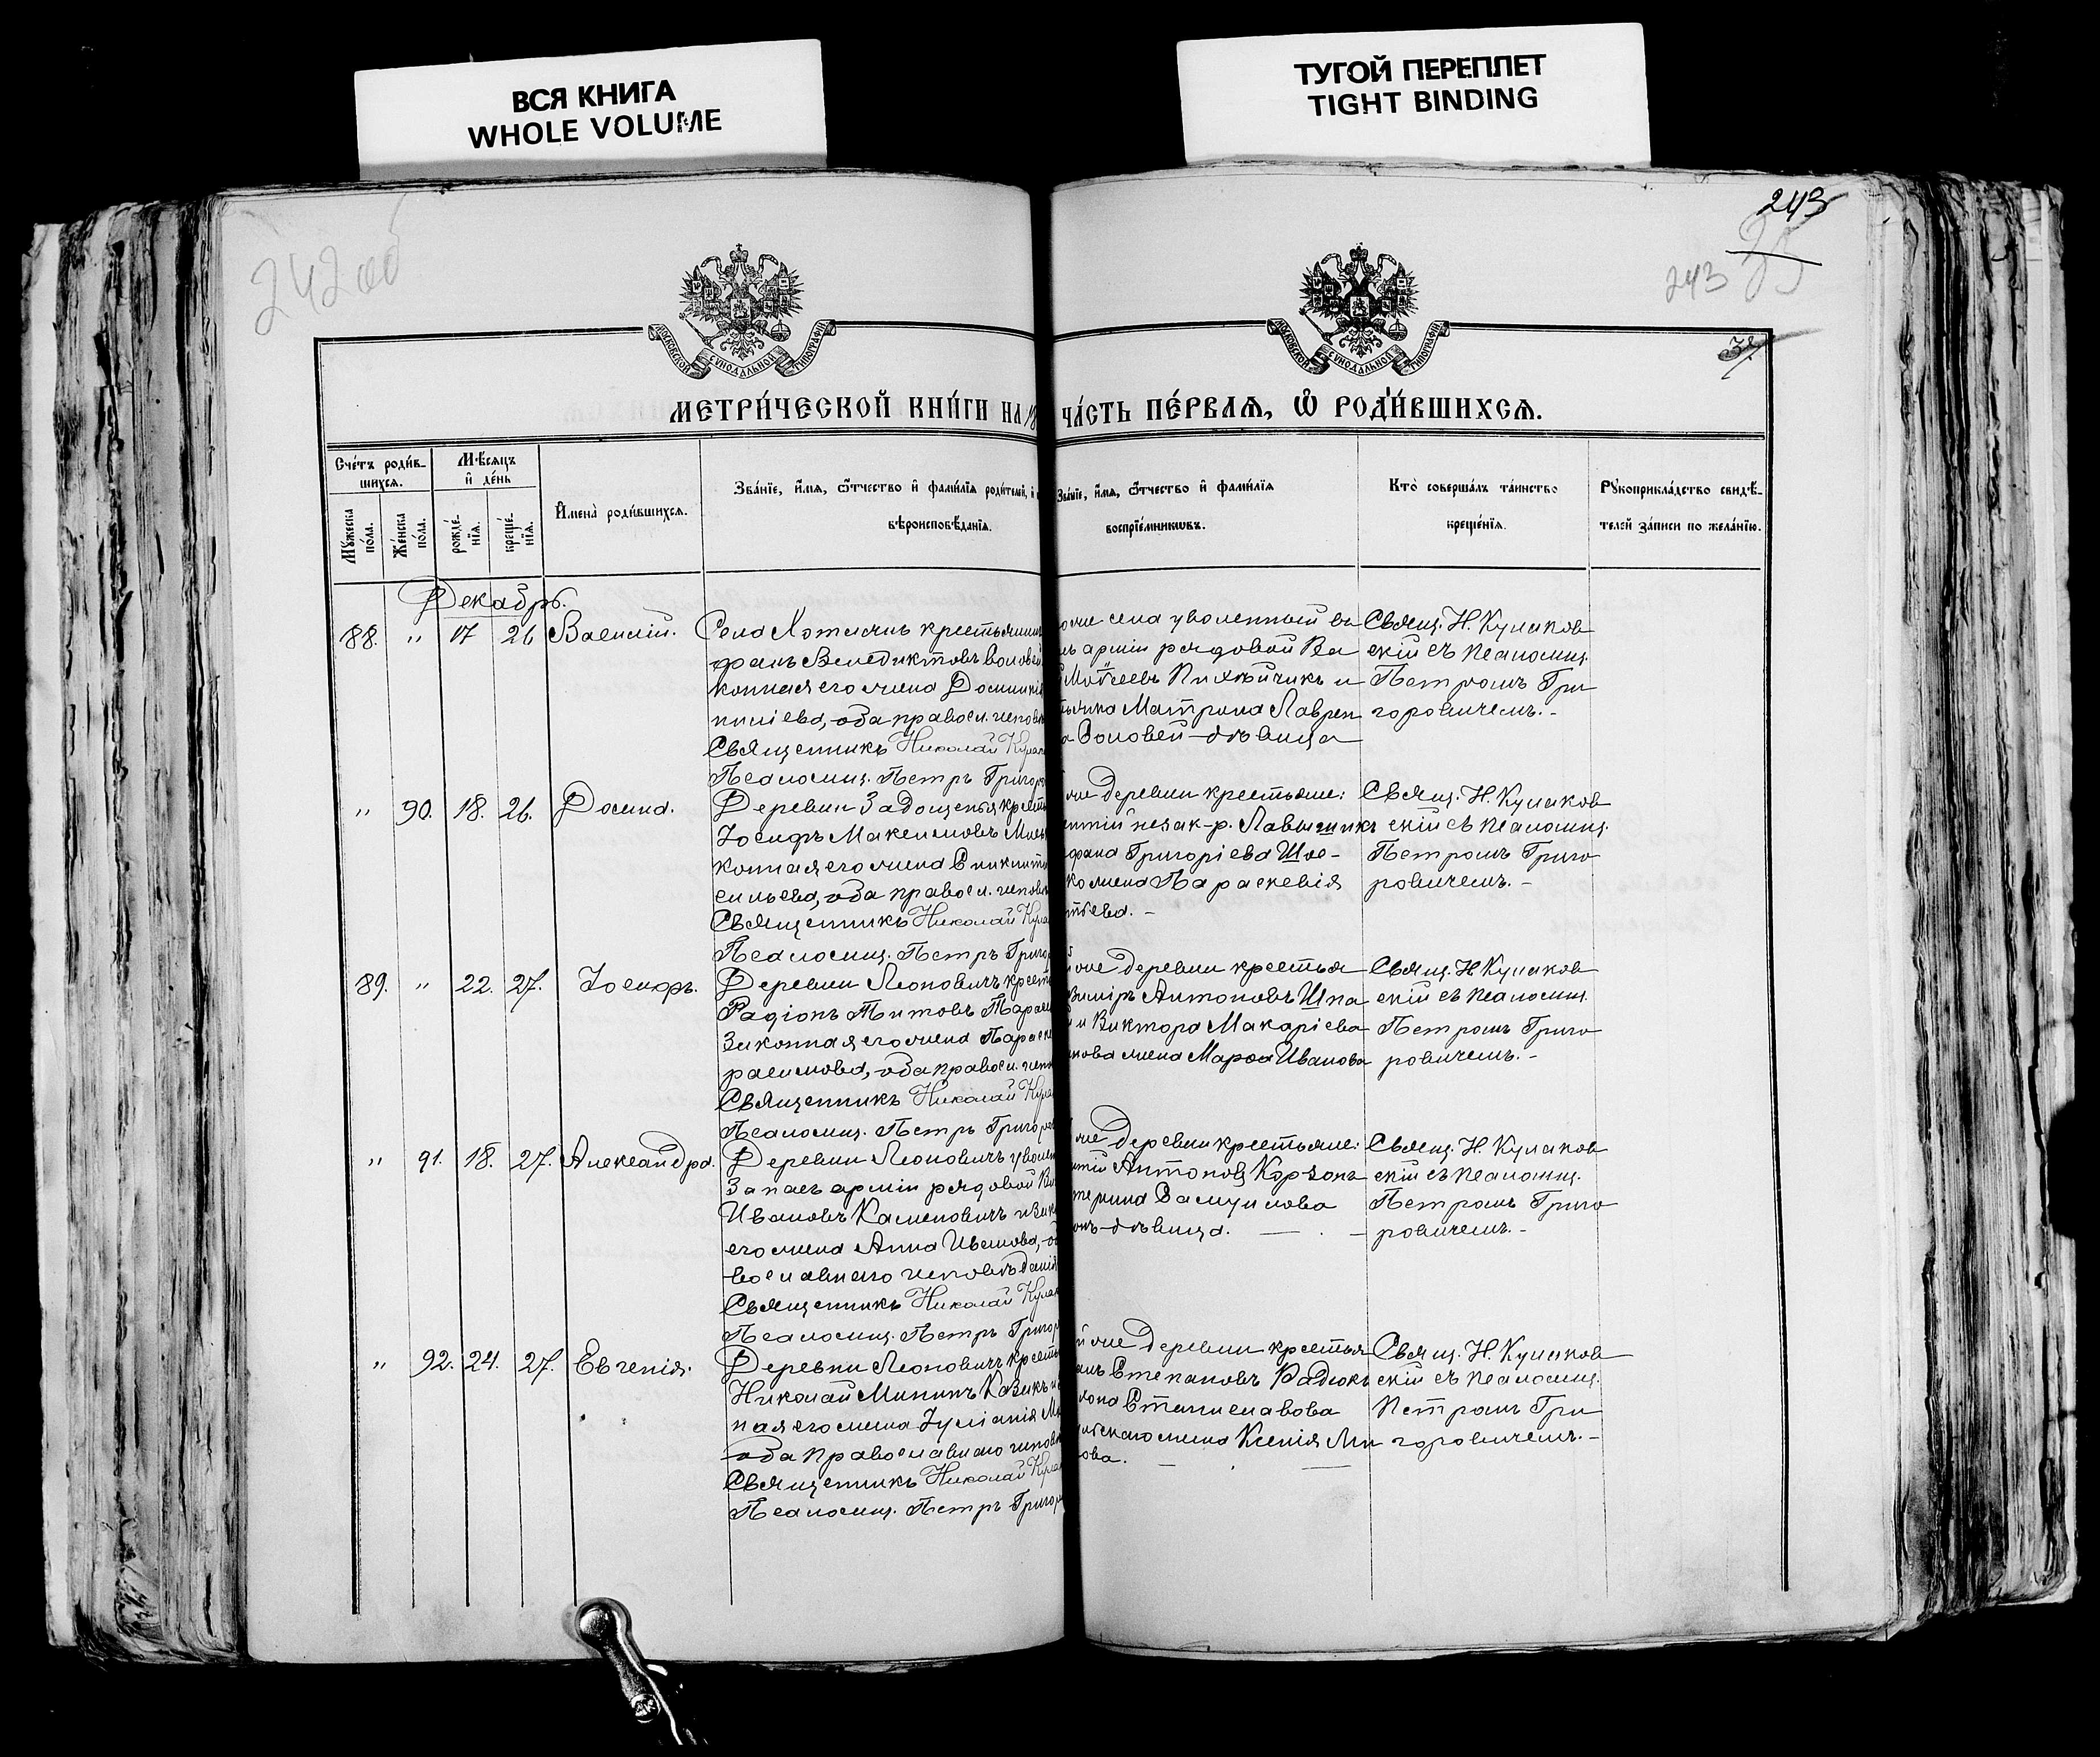 ВСЯ КНИГА
WHOLE VOLUME
ТУГОЙ ПЕРЕПЛЕТ
TIGHT BINDING
242 об
243
243
МОСКОВСКОЙ СѴНОДАЛЬНОЙ ТИПОГРАФІИ
МОСКОВСКОЙ СѴНОДАЛЬНОЙ ТИПОГРАФІИ
МЕТРИ́ЧЕСКОЙ КНИ́ГИ НА 18
ЧА́СТЬ ПЕ́РВАѦ, Ѽ РОДИ́ВШИХСѦ.
Сче́тъ роди́в-
шихсѧ.
Мѣ́сѧцъ
и҆ де́нь
Мꙋ́жеска
по́ла.
Же́нска
по́ла.
рожде́-
нїѧ.
креще́-
нїѧ.
И҆мена̀ роди́вшихсѧ.
Зва́нїе, и҆́мѧ, ѻ҆́тчество и҆ фами́лїѧ роди́телей, и҆
вѣроисповѣ́данїѧ.
Зва́нїе, и҆́мѧ, ѻ҆́тчество и҆ фами́лїѧ
воспрїе́мникѡвъ.
Кто̀ соверша́лъ та́инство
креще́нїѧ.
Рꙋкоприкла́дство свидѣ́-
телей за́писи по жела́нїю.
Декабрь.
88. " 17 26 Василій.
Села Хотыничъ крестьянинъ
фанъ Венедиктовъ Соловей
конная его жена Домникія
нилiева, оба правосл. исповѣ
Священникъ Николай Кула
Псаломщ. Петръ Григоро
оже села уволенный въ
ъ арміи рядовой Ва
Мотѣевъ Пихнйчикъ и
Матрона Лаврен
а Соловей-дѣвица
Свящ. Н. Кулаков
скій съ псаломщ.
Петромъ Гри
горовичемъ.-
" 90. 18. 26. Домна.
Деревни Задощенья кресть
Іосифъ Максимовъ
конная его жена
сильева, оба правосл. исповѣ
Священникъ Николай Кула
Псаломщ. Петръ Григо
оже деревни крестьяне:
незак-р. Лавышикъ
Григоріева Шле-
ко жена Параскевія
тѣева. -
Свящ. Н. Кулаков
скій съ псаломщ.
Петромъ Григо
ровичемъ.-
89. " 22. 27. Іосифъ.
Деревни Леоновичъ кресть
Радіонъ Титовъ
Законная его жена Параск
расимова, оба правосл. испо
Священникъ Николай Кула
Псаломщ. Петръ Григоро
оже деревни крестья
Антоновъ Шпа
и Виктора Макаріева
нова жена Марѳа Иванова
Свящ. Н. Кулаков
скій съ псаломщ.
Петромъ Григо
ровичемъ.-
" 91. 18. 27. Александра.
Деревни Леоновичъ уволен
Запасъ арміи рядовой
Ивановъ Каменовичъ и зак
его жена Анна Иванова, об
вославнаго исповѣданія
Священникъ Николай Кула
Псаломщ. Петръ Григор
же деревни крестьяне:
Антоновъ Корзонъ
терина Самуилова
онъ-дѣвица. -
Свящ. Н. Кулаков
скій съ псаломщ.
Петромъ Григо
ровичемъ.-
" 92. 24. 27. Евгенія.
Деревни Леоновичъ кресть
Николай Мининъ Казикъ и
ная его жена Іуліанія Ма
оба православнаго исповѣ
Священникъ Николай Кула
Псаломщ. Петръ Григор
й же деревни крестья
анъ Степановъ Радюкъ
она Станиславова
скаго жена Ксенія Ми
ова.
Свящ. Н. Кулаков
скій съ псаломщ.
Петромъ Гри
горовичемъ.-